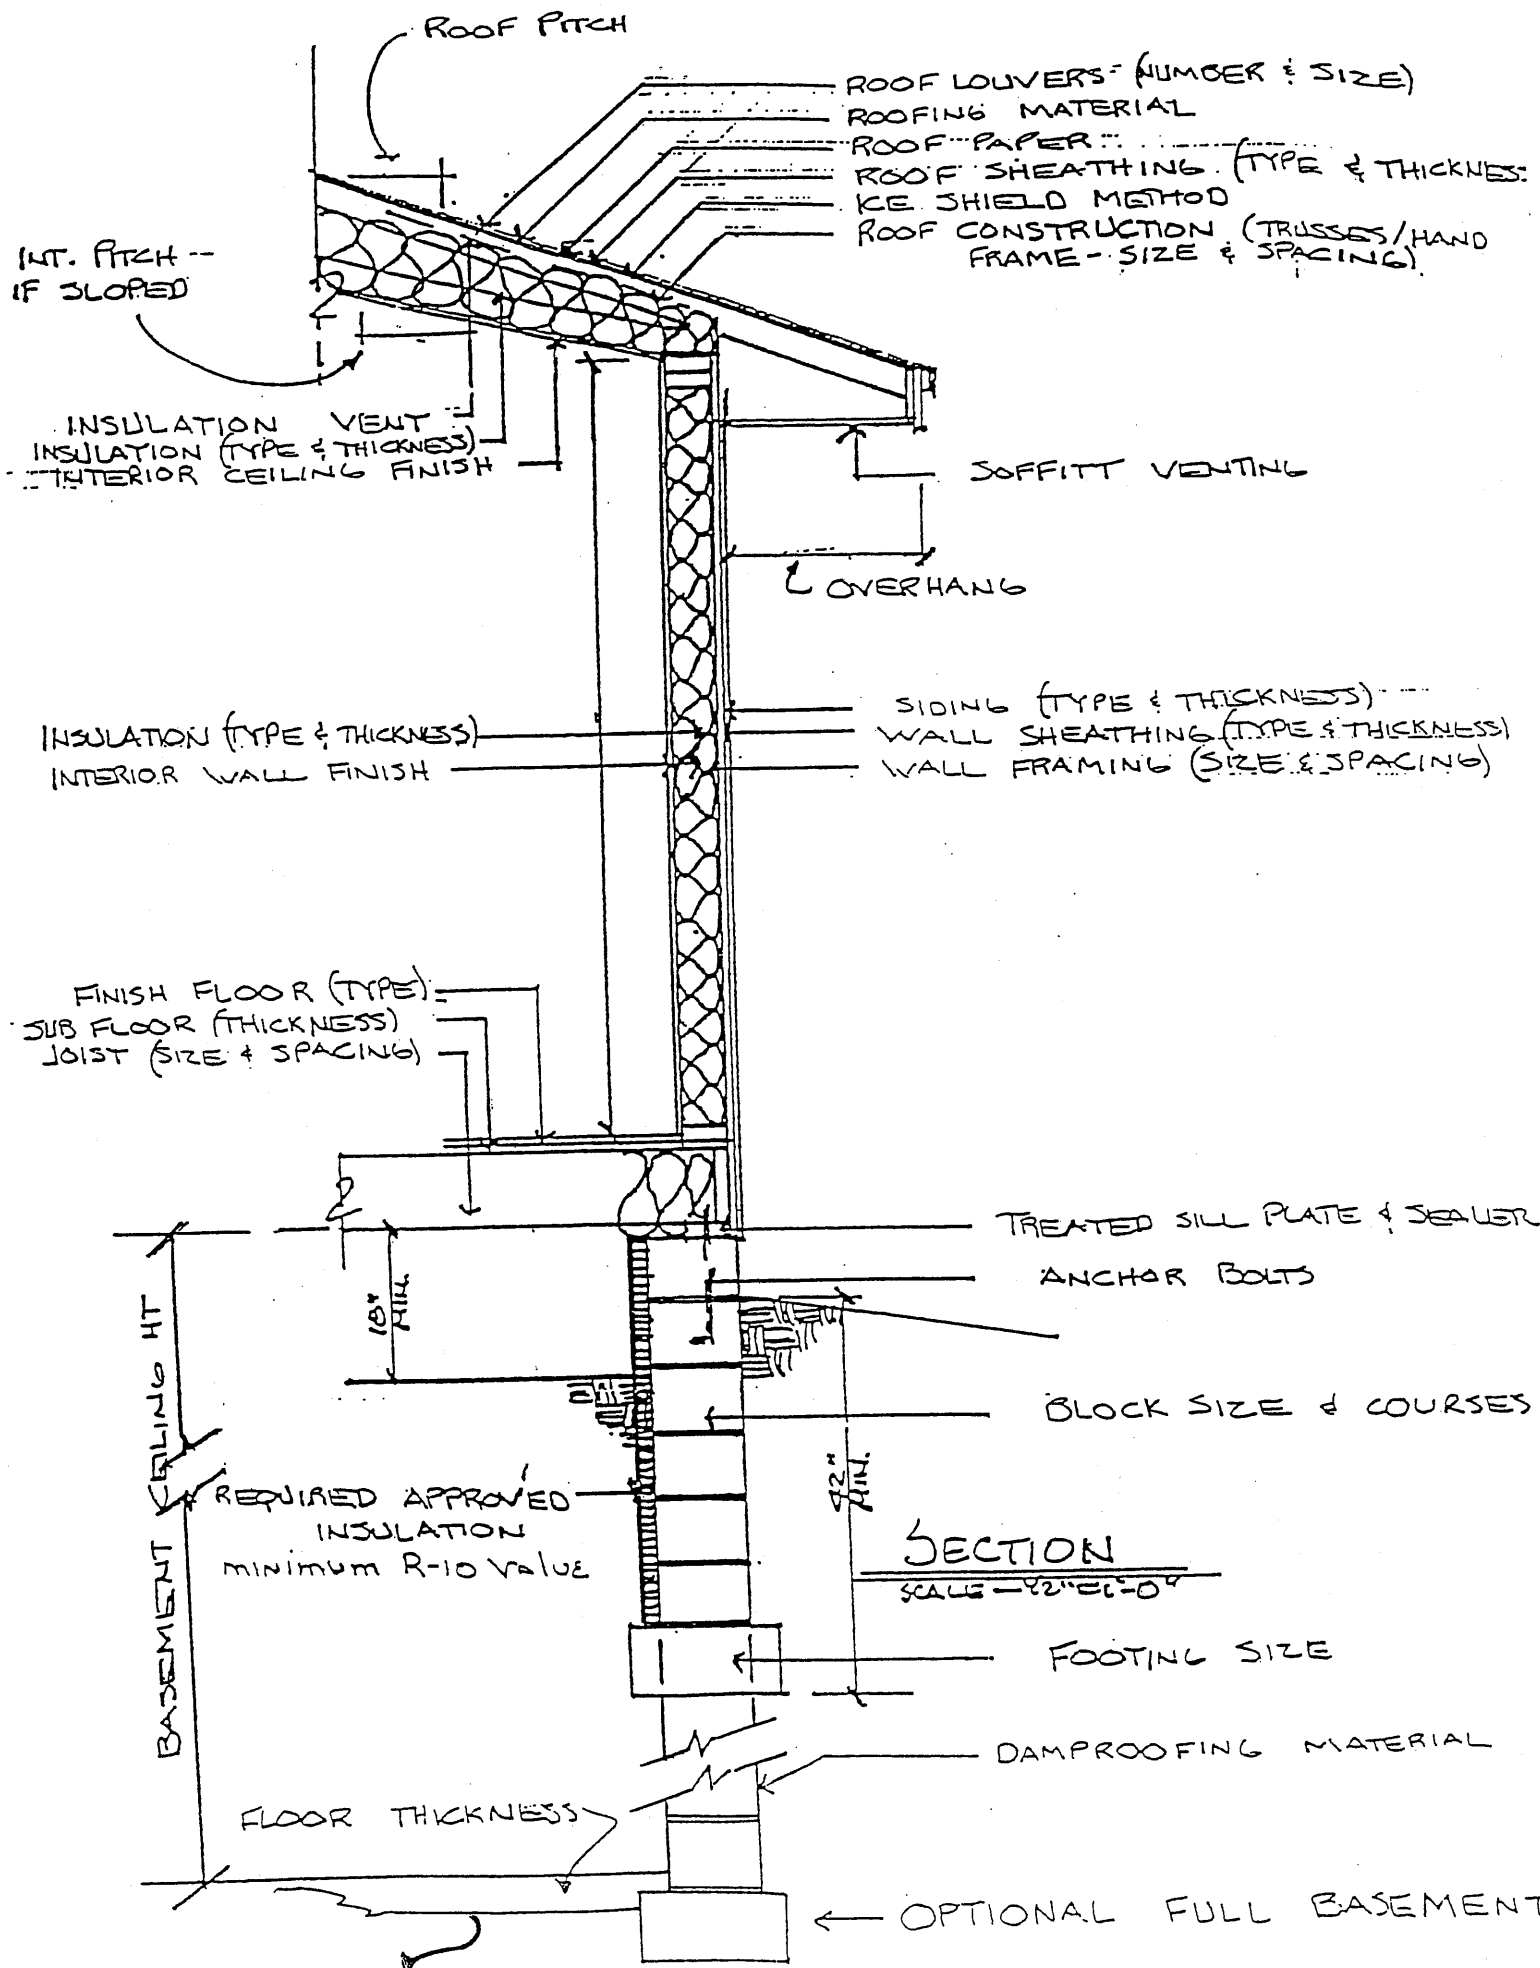 ROOF PITCH
ROOF LOUVERS- (NUMBER & SIZE)
ROOFING MATERIAL
ROOF PAPER
ROOF SHEATHING (TYPE & THICKNES
ICE SHIELD METHOD
ROOF CONSTRUCTION (TRUSSES/HAND
FRAME - SIZE & SPACING)
INT. PITCH --
IF SLOPED
INSULATION VENT
INSULATION (TYPE & THICKNESS)
INTERIOR CEILING FINISH
SOFFITT VENTING
OVERHANG
SIDING (TYPE & THICKNESS)
INSULATION (TYPE & THICKNESS)
WALL SHEATHING (TYPE & THICKNESS)
INTERIOR WALL FINISH
WALL FRAMING (SIZE & SPACING)
FINISH FLOOR (TYPE)
SUB FLOOR (THICKNESS)
JOIST (SIZE & SPACING)
TREATED SILL PLATE & SEALER
ANCHOR BOLTS
18" MIN.
BASEMENT CEILING HT
BLOCK SIZE & COURSES
42" MIN.
REQUIRED APPROVED
INSULATION
minimum R-10 Value
SECTION
SCALE - 1/2"=1'-0"
FOOTING SIZE
DAMPROOFING MATERIAL
FLOOR THICKNESS
OPTIONAL FULL BASEMENT